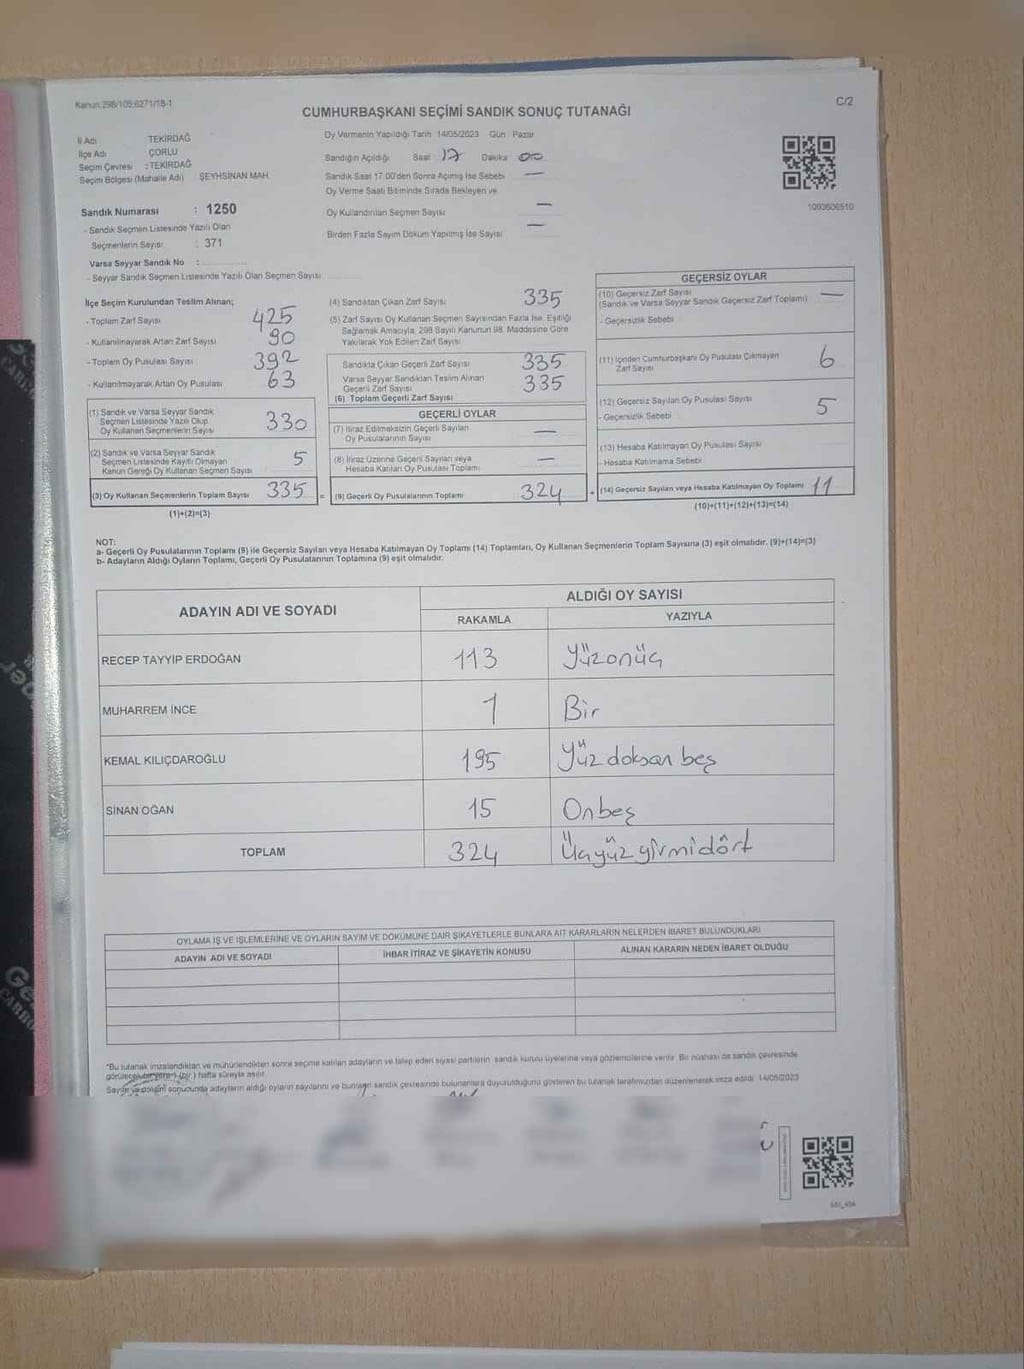 Kanun:298/105;6271/18-1
C/2
CUMHURBAŞKANI SEÇİMİ SANDIK SONUÇ TUTANAĞI
İl Adı TEKİRDAĞ
İlçe Adı ÇORLU
Seçim Çevresi : TEKİRDAĞ
Seçim Bölgesi (Mahalle Adı) ŞEYHSİNAN MAH.
Sandık Numarası : 1250
- Sandık Seçmen Listesinde Yazılı Olan
Seçmenlerin Sayısı : 371
Varsa Seyyar Sandık No :
- Seyyar Sandık Seçmen Listesinde Yazılı Olan Seçmen Sayısı
Oy Vermenin Yapıldığı Tarih 14/05/2023 Gün Pazar
Sandığın Açıldığı Saat 17 Dakika 00
Sandık Saat 17.00'den Sonra Açılmış İse Sebebi —
Oy Verme Saati Bitiminde Sırada Bekleyen ve
Oy Kullandırılan Seçmen Sayısı —
Birden Fazla Sayım Döküm Yapılmış İse Sayısı —
1093606510
İlçe Seçim Kurulundan Teslim Alınan;
- Toplam Zarf Sayısı 425
- Kullanılmayarak Artan Zarf Sayısı 90
- Toplam Oy Pusulası Sayısı 392
- Kullanılmayarak Artan Oy Pusulası 63
(1) Sandık ve Varsa Seyyar Sandık
Seçmen Listesinde Yazılı Olup
Oy Kullanan Seçmenlerin Sayısı 330
(2) Sandık ve Varsa Seyyar Sandık
Seçmen Listesinde Kayıtlı Olmayan
Kanun Gereği Oy Kullanan Seçmen Sayısı 5
(3) Oy Kullanan Seçmenlerin Toplam Sayısı 335
(1)+(2)=(3)
(4) Sandıktan Çıkan Zarf Sayısı 335
(5) Zarf Sayısı Oy Kullanan Seçmen Sayısından Fazla İse, Eşitliği
Sağlamak Amacıyla, 298 Sayılı Kanunun 98. Maddesine Göre
Yakılarak Yok Edilen Zarf Sayısı
Sandıkta Çıkan Geçerli Zarf Sayısı 335
Varsa Seyyar Sandıktan Teslim Alınan
Geçerli Zarf Sayısı 335
(6) Toplam Geçerli Zarf Sayısı
GEÇERLİ OYLAR
(7) İtiraz Edilmeksizin Geçerli Sayılan
Oy Pusulalarının Sayısı —
(8) İtiraz Üzerine Geçerli Sayılan veya
Hesaba Katılan Oy Pusulası Toplamı —
= (9) Geçerli Oy Pusulalarının Toplamı 324
GEÇERSİZ OYLAR
(10) Geçersiz Zarf Sayısı
(Sandık ve Varsa Seyyar Sandık Geçersiz Zarf Toplamı) —
- Geçersizlik Sebebi
(11) İçinden Cumhurbaşkanı Oy Pusulası Çıkmayan
Zarf Sayısı 6
(12) Geçersiz Sayılan Oy Pusulası Sayısı 5
- Geçersizlik Sebebi
(13) Hesaba Katılmayan Oy Pusulası Sayısı
- Hesaba Katılmama Sebebi
+ (14) Geçersiz Sayılan veya Hesaba Katılmayan Oy Toplamı 11
(10)+(11)+(12)+(13)=(14)
NOT:
a- Geçerli Oy Pusulalarının Toplamı (9) ile Geçersiz Sayılan veya Hesaba Katılmayan Oy Toplamı (14) Toplamları, Oy Kullanan Seçmenlerin Toplam Sayısına (3) eşit olmalıdır. (9)+(14)=(3)
b- Adayların Aldığı Oyların Toplamı, Geçerli Oy Pusulalarının Toplamına (9) eşit olmalıdır.
ADAYIN ADI VE SOYADI ALDIĞI OY SAYISI
RAKAMLA YAZIYLA
RECEP TAYYİP ERDOĞAN 113 Yüzonüç
MUHARREM İNCE 1 Bir
KEMAL KILIÇDAROĞLU 195 Yüz doksan beş
SİNAN OĞAN 15 Onbeş
TOPLAM 324 Üçyüz yirmidört
OYLAMA İŞ VE İŞLEMLERİNE VE OYLARIN SAYIM VE DÖKÜMÜNE DAİR ŞİKAYETLERLE BUNLARA AİT KARARLARIN NELERDEN İBARET BULUNDUKLARI
ADAYIN ADI VE SOYADI İHBAR İTİRAZ VE ŞİKAYETİN KONUSU ALINAN KARARIN NEDEN İBARET OLDUĞU
*Bu tutanak imzalandıktan ve mühürlendikten sonra seçime katılan adayların ve talep eden siyasi partilerin sandık kurulu üyelerine veya gözlemcilerine verilir. Bir nüshası da sandık çevresinde
hafta süreyle asılır.
Sayım ve döküm sonucunda adayların aldığı oyların sayılarını ve bunların sandık çevresinde bulunanlara duyurulduğunu gösteren bu tutanak tarafımızdan düzenlenerek imza edildi. 14/05/2023